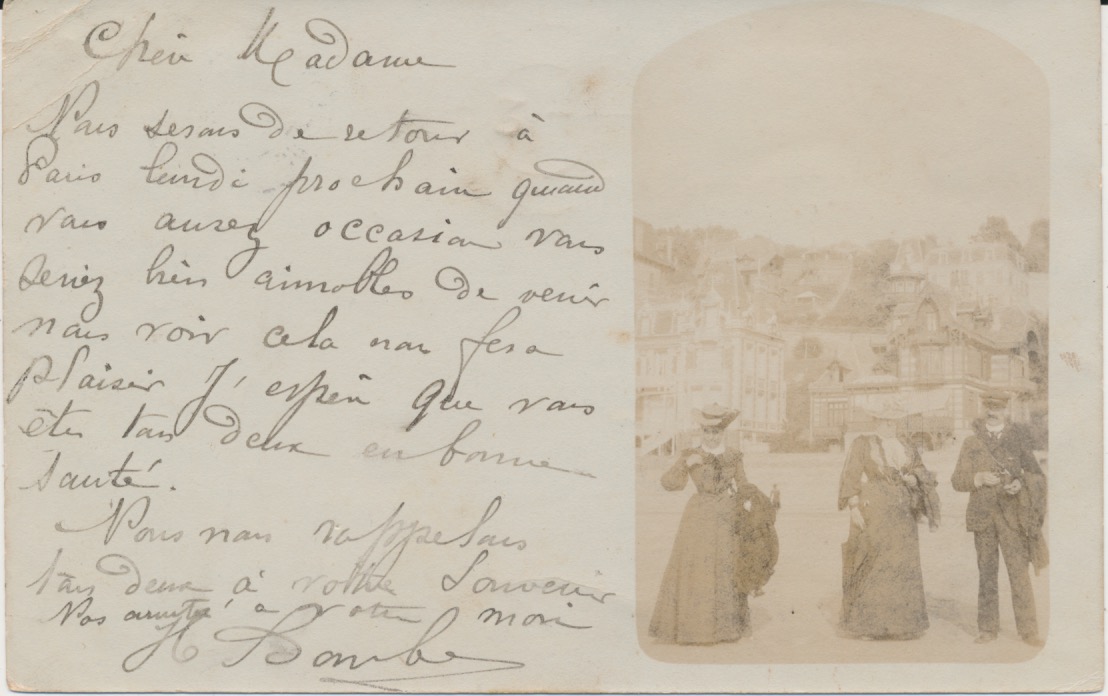 Chère Madame
Nous serons de retour à
Paris lundi prochain quand
vous aurez occasion vous
seriez bien aimables de venir
nous voir cela nou fera
plaisir J'espère que vous
êtes tous deux en bonne
santé.
Nous nous rappelons
tous deux à votre Souvenir
Nos amitié à votre mari